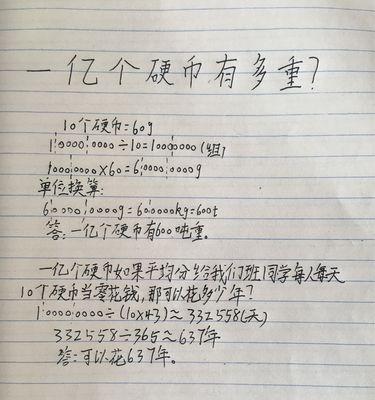 一亿个硬币有多重？
10个硬币=60g
100000000÷10=10000000(组)
10000000×60=600000000g
单位换算：
600000000g=600000kg=600t
答：一亿个硬币有600吨重。
一亿个硬币如果平均分给我们班同学每人每天
10个硬币当零花钱，那可以花多少年？
100000000÷(10×43)≈232558(天)
232558÷365≈637年
答：可以花637年。